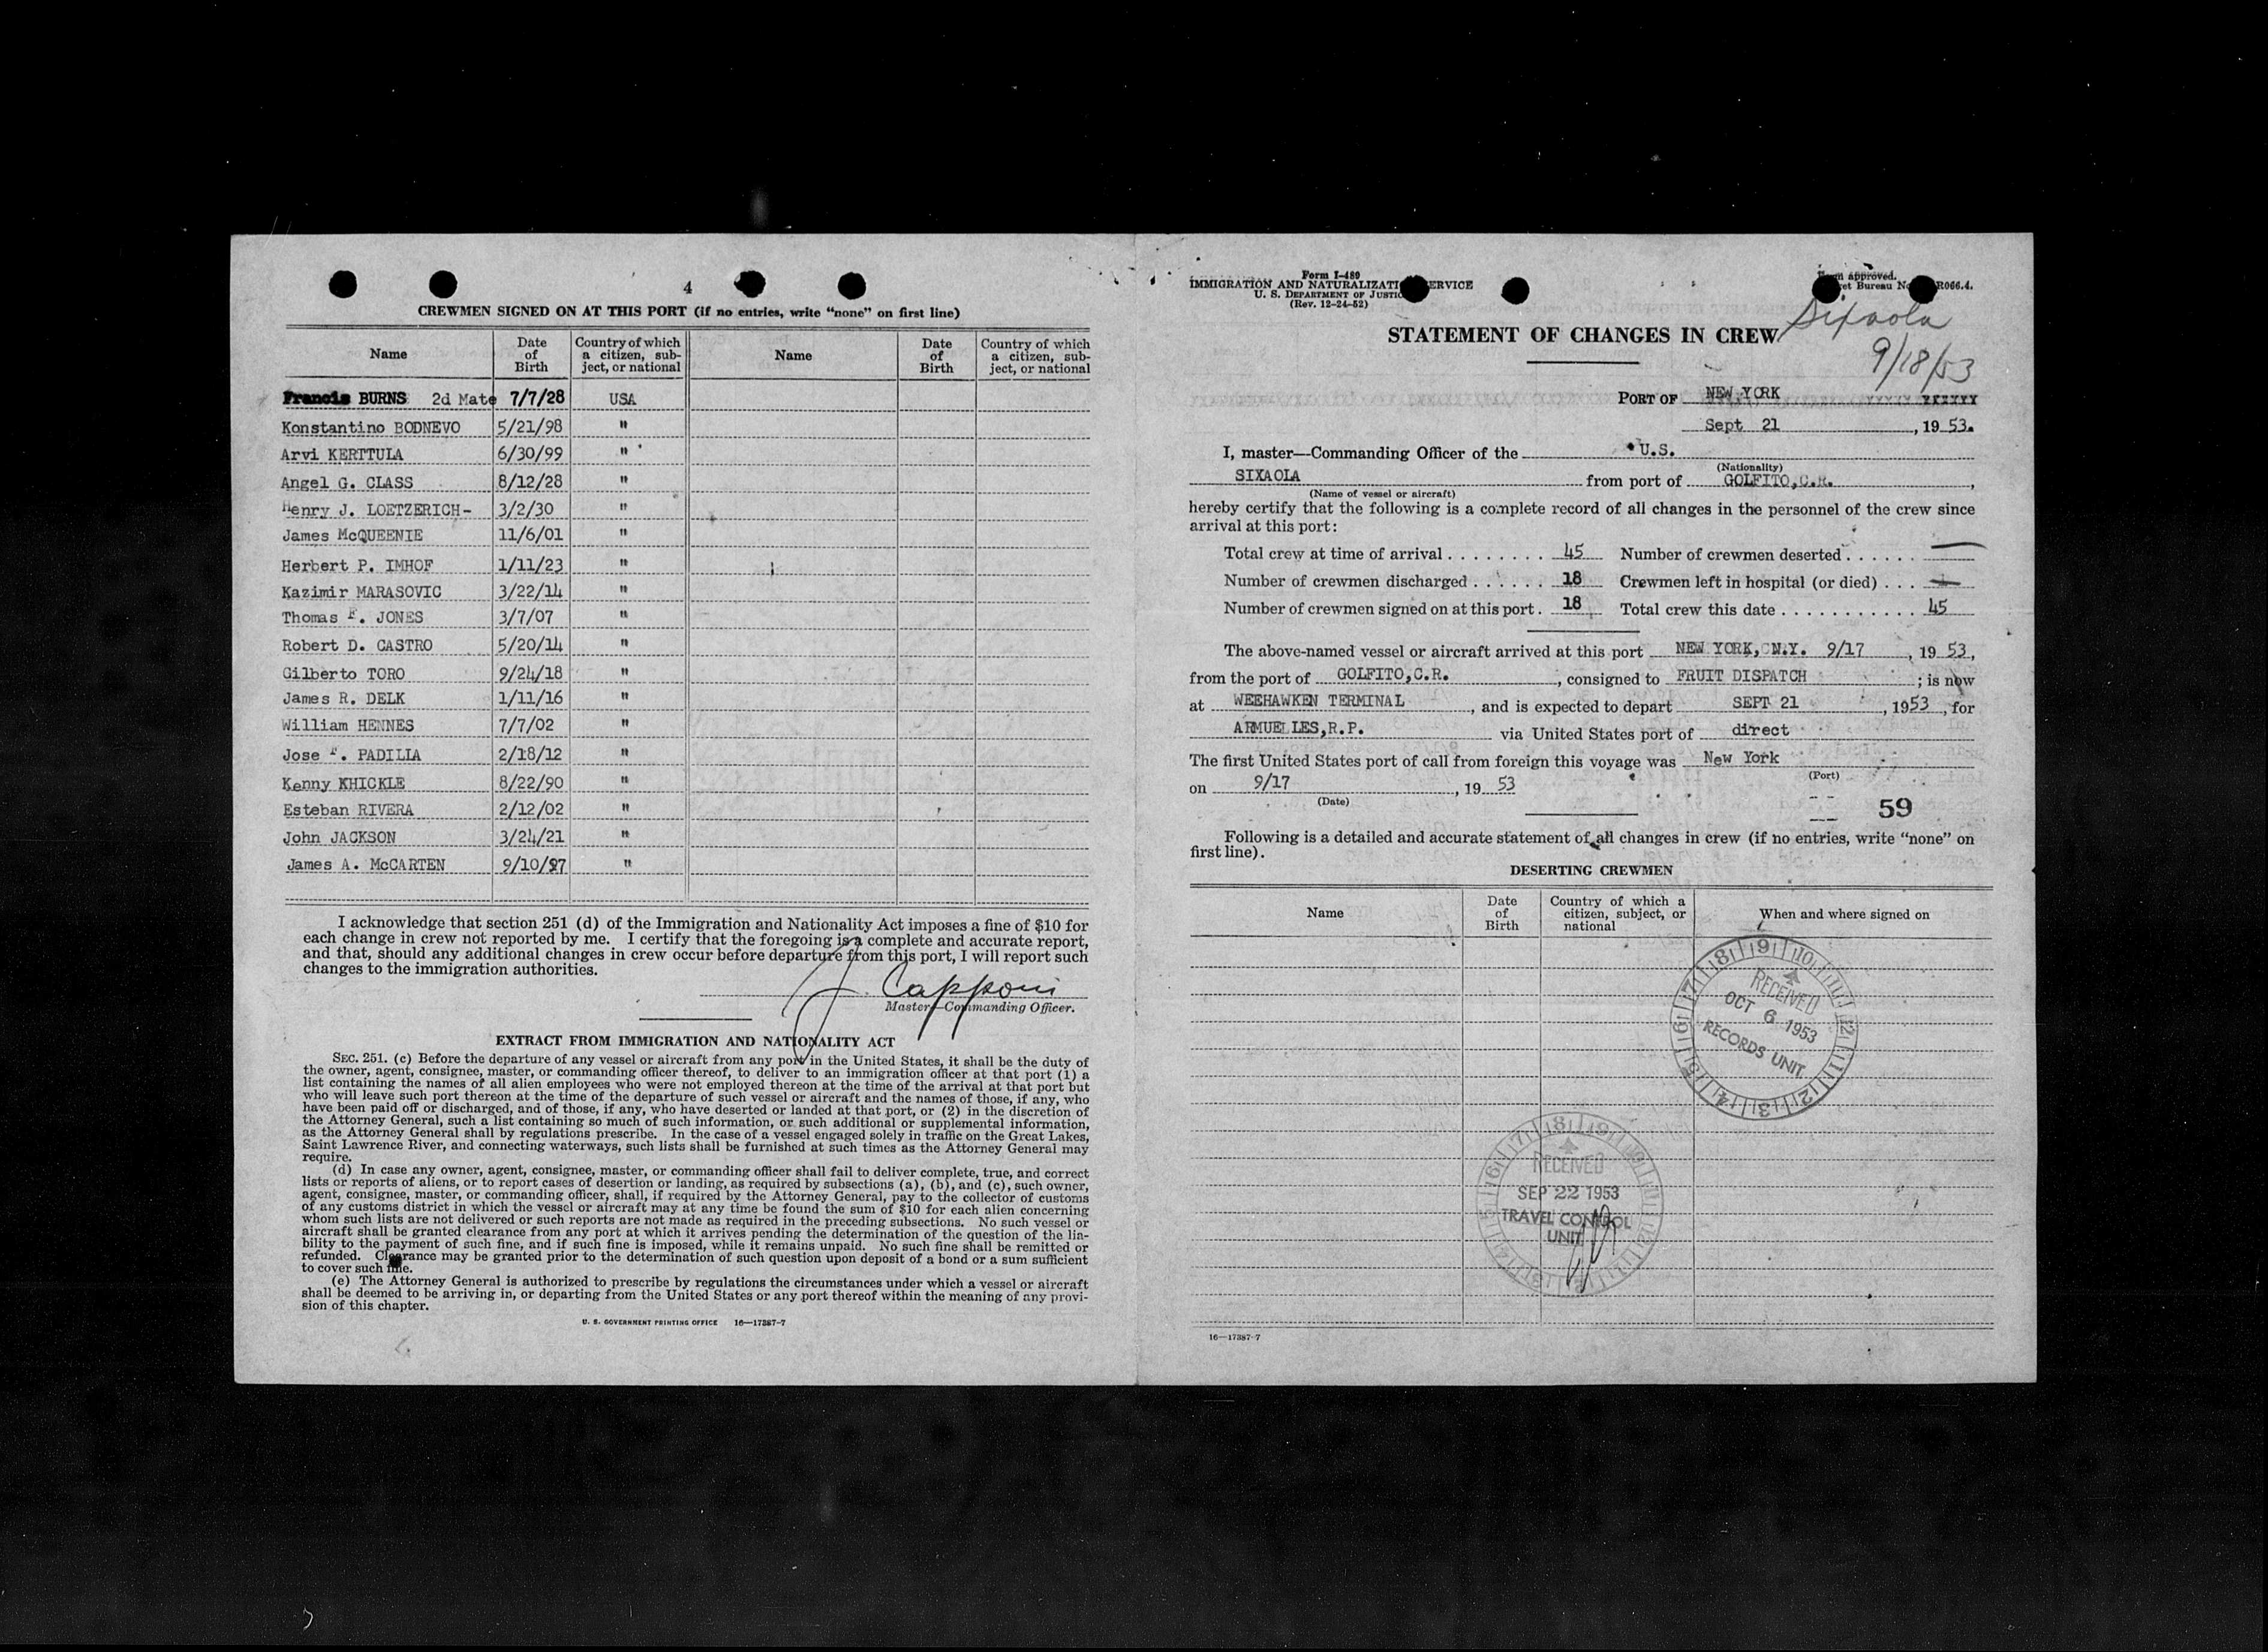 4
CREWMEN SIGNED ON AT THIS PORT (if no entries, write “none” on first line)
Name Date of Birth Country of which a citizen, sub-ject, or national Name Date of Birth Country of which a citizen, sub-ject, or national
Francis BURNS 2d Mate 7/7/28 USA
Konstantino BODNEVO 5/21/98 "
Arvi KERTTULA 6/30/99 "
Angel G. CLASS 8/12/28 "
Henry J. LOETZERICH- 3/2/30 "
James McQUEENIE 11/6/01 "
Herbert P. IMHOF 1/11/23 "
Kazimir MARASOVIC 3/22/14 "
Thomas F. JONES 3/7/07 "
Robert D. CASTRO 5/20/14 "
Gilberto TORO 9/24/18 "
James R. DELK 1/11/16 "
William HENNES 7/7/02 "
Jose F. PADILLA 2/18/12 "
Kenny KHICKLE 8/22/90 "
Esteban RIVERA 2/12/02 "
John JACKSON 3/24/21 "
James A. McCARTEN 9/10/97 "
I acknowledge that section 251 (d) of the Immigration and Nationality Act imposes a fine of $10 for
each change in crew not reported by me. I certify that the foregoing is a complete and accurate report,
and that, should any additional changes in crew occur before departure from this port, I will report such
changes to the immigration authorities.
J. Capponi
Master—Commanding Officer.
EXTRACT FROM IMMIGRATION AND NATIONALITY ACT
SEC. 251. (c) Before the departure of any vessel or aircraft from any port in the United States, it shall be the duty of
the owner, agent, consignee, master, or commanding officer thereof, to deliver to an immigration officer at that port (1) a
list containing the names of all alien employees who were not employed thereon at the time of the arrival at that port but
who will leave such port thereon at the time of the departure of such vessel or aircraft and the names of those, if any, who
have been paid off or discharged, and of those, if any, who have deserted or landed at that port, or (2) in the discretion of
the Attorney General, such a list containing so much of such information, or such additional or supplemental information,
as the Attorney General shall by regulations prescribe. In the case of a vessel engaged solely in traffic on the Great Lakes,
Saint Lawrence River, and connecting waterways, such lists shall be furnished at such times as the Attorney General may
require.
(d) In case any owner, agent, consignee, master, or commanding officer shall fail to deliver complete, true, and correct
lists or reports of aliens, or to report cases of desertion or landing, as required by subsections (a), (b), and (c), such owner,
agent, consignee, master, or commanding officer, shall, if required by the Attorney General, pay to the collector of customs
of any customs district in which the vessel or aircraft may at any time be found the sum of $10 for each alien concerning
whom such lists are not delivered or such reports are not made as required in the preceding subsections. No such vessel or
aircraft shall be granted clearance from any port at which it arrives pending the determination of the question of the lia-
bility to the payment of such fine, and if such fine is imposed, while it remains unpaid. No such fine shall be remitted or
refunded. Clearance may be granted prior to the determination of such question upon deposit of a bond or a sum sufficient
to cover such fine.
(e) The Attorney General is authorized to prescribe by regulations the circumstances under which a vessel or aircraft
shall be deemed to be arriving in, or departing from the United States or any port thereof within the meaning of any provi-
sion of this chapter.
U. S. GOVERNMENT PRINTING OFFICE 16—17387-7
Form I-489
IMMIGRATION AND NATURALIZATION SERVICE
U. S. DEPARTMENT OF JUSTICE
(Rev. 12-24-52)
Form approved.
Bureau No. R066.4.
Sixaola
9/18/53
STATEMENT OF CHANGES IN CREW
PORT OF NEW YORK
Sept 21, 1953.
I, master—Commanding Officer of the U.S.
(Nationality)
SIXAOLA from port of GOLFITO,C.R.,
(Name of vessel or aircraft)
hereby certify that the following is a complete record of all changes in the personnel of the crew since
arrival at this port:
Total crew at time of arrival 45 Number of crewmen deserted —
Number of crewmen discharged 18 Crewmen left in hospital (or died) —
Number of crewmen signed on at this port. 18 Total crew this date 45
The above-named vessel or aircraft arrived at this port NEW YORK, N.Y. 9/17, 1953,
from the port of GOLFITO,C.R., consigned to FRUIT DISPATCH; is now
at WEEHAWKEN TERMINAL, and is expected to depart SEPT 21, 1953, for
ARMUELLES,R.P. via United States port of direct
The first United States port of call from foreign this voyage was New York
(Port)
on 9/17, 1953
(Date)
59
Following is a detailed and accurate statement of all changes in crew (if no entries, write “none” on
first line).
DESERTING CREWMEN
Name Date of Birth Country of which a citizen, subject, or national When and where signed on
RECEIVED
OCT 6 1953
RECORDS UNIT
RECEIVED
SEP 22 1953
TRAVEL CONTROL
UNIT
16—17387-7